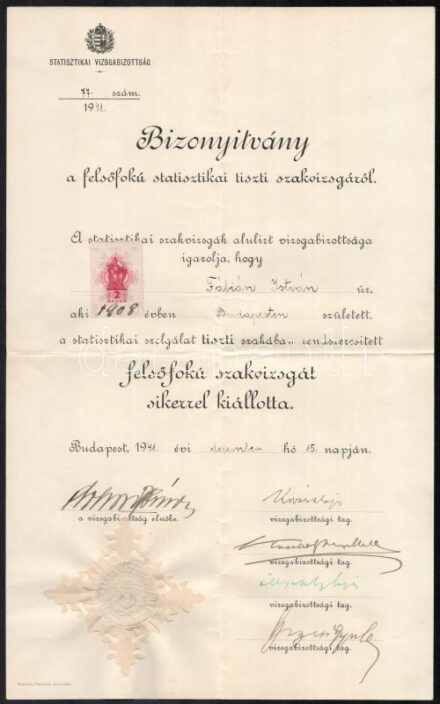 STATISZTIKAI VIZSGABIZOTTSÁG
77. szám.
1941.
Bizonyitvány
a felsőfokú statisztikai tiszti szakvizsgáról.
A statisztikai szakvizsgák alulirt vizsgabizottsága
igazolja, hogy
Fábián István úr,
2
aki 1908 évben Budapesten született,
a statisztikai szolgálat tiszti szakában rendszeresitett
felsőfokú szakvizsgát
sikerrel kiállotta.
Budapest, 1941. évi december hó 15. napján.
a vizsgabizottság elnöke.
vizsgabizottsági tag.
vizsgabizottsági tag.
vizsgabizottsági tag.
vizsgabizottsági tag.